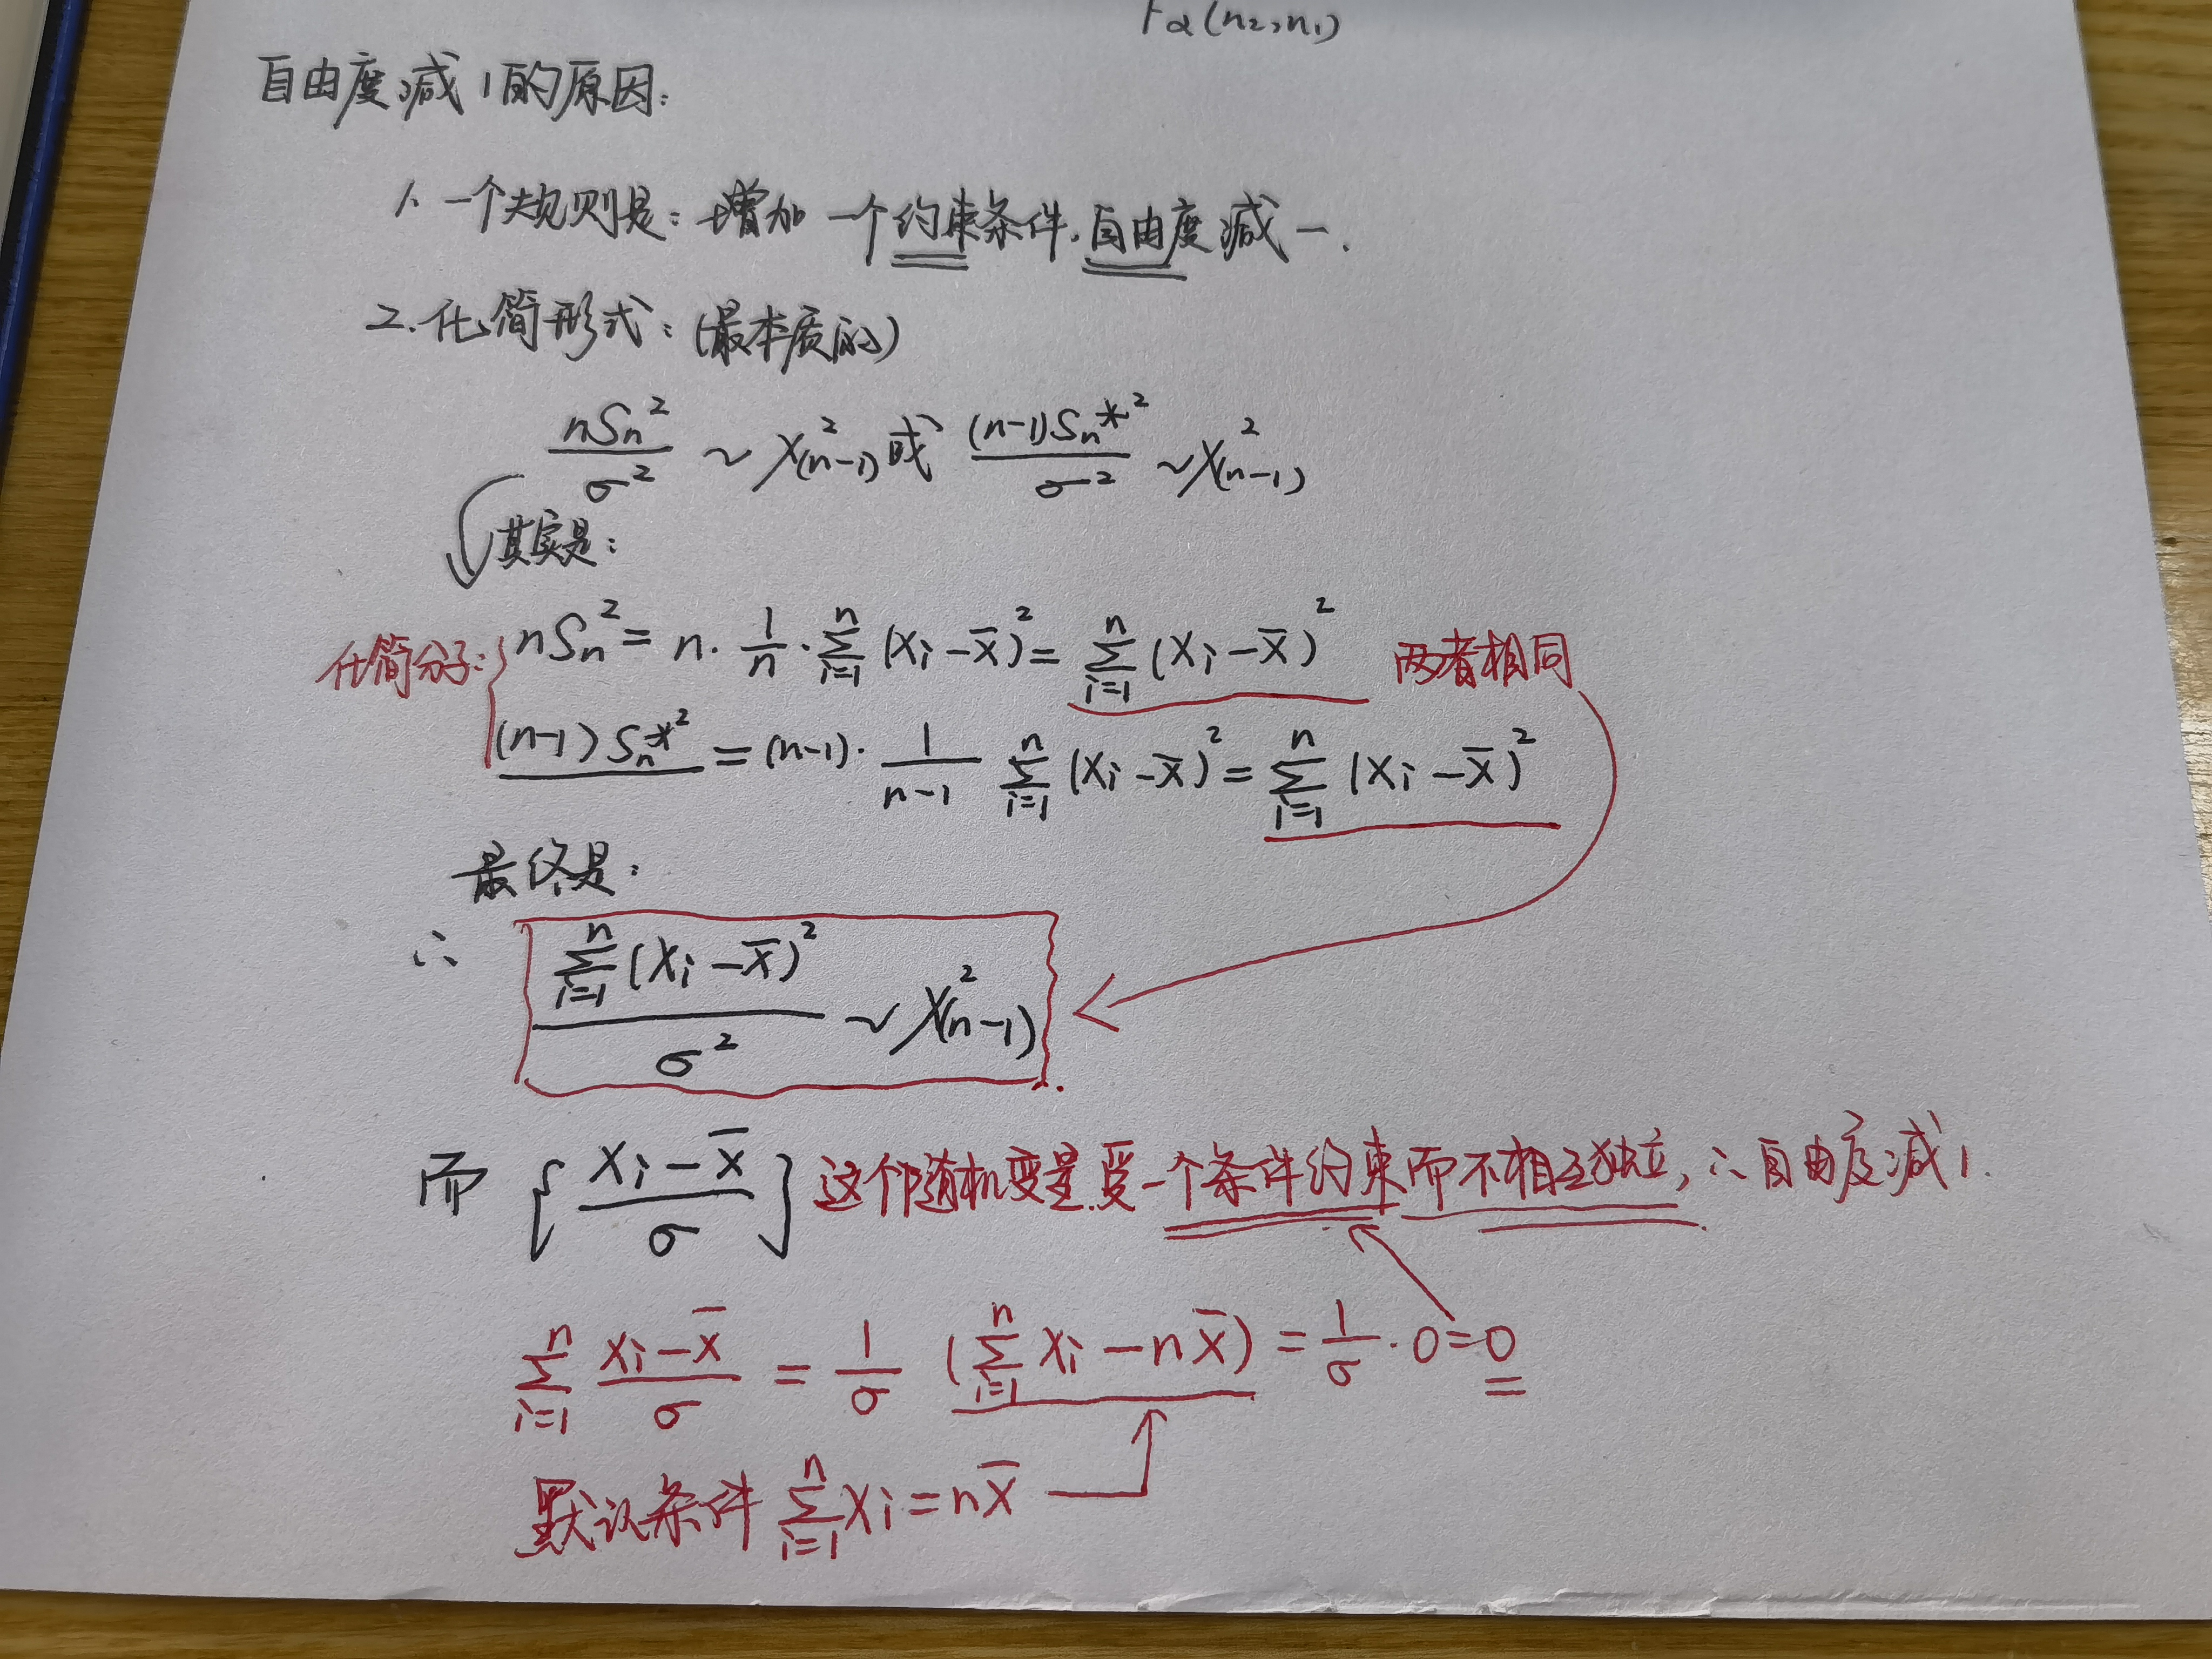 Fα(n₂,n₁)
自由度减1的原因:
1. 一个规则是: 增加一个约束条件,自由度减一.
2. 化简形式: (最本质的)
nSₙ²/σ² ~ χ²(n-1) 或 (n-1)Sₙ*²/σ² ~ χ²(n-1)
其实是:
化简分子: nSₙ² = n · 1/n · ∑ᵢ₌₁ⁿ (Xᵢ - X̄)² = ∑ᵢ₌₁ⁿ (Xᵢ - X̄)² 两者相同
(n-1)Sₙ*² = (n-1) · 1/(n-1) ∑ᵢ₌₁ⁿ (Xᵢ - X̄)² = ∑ᵢ₌₁ⁿ (Xᵢ - X̄)²
最终是:
∴ ∑ᵢ₌₁ⁿ (Xᵢ - X̄)²/σ² ~ χ²(n-1)
而 {(Xᵢ - X̄)/σ} 这个随机变量受一个条件约束而不相互独立, ∴自由度减1.
∑ᵢ₌₁ⁿ (Xᵢ - X̄)/σ = 1/σ (∑ᵢ₌₁ⁿ Xᵢ - nX̄) = 1/σ · 0 = 0
默认条件 ∑ᵢ₌₁ⁿ Xᵢ = nX̄